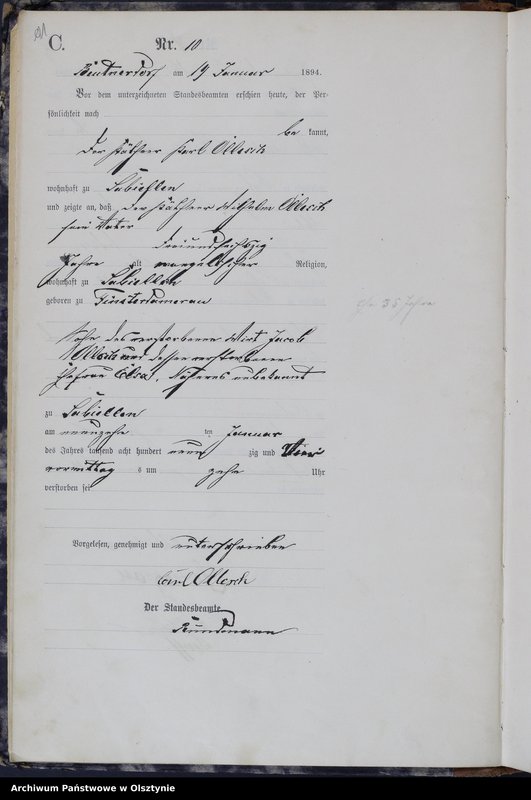 C.
Nr. 10
Beutnerdorf am 19 Januar 1894.
Vor dem unterzeichneten Standesbeamten erschien heute, der Per-
sönlichkeit nach
be kannt,
der Käthner Karl Olleseck
wohnhaft zu Sabiellen
und zeigte an, daß der Käthner Wilhelm Olleseck
sein Vater
dreiundsechszig
Jahre alt evangelischer Religion,
wohnhaft zu Sabiellen
geboren zu Finsterdamerau
35 Jahre
Sohn des verstorbenen Wirt Jacob
und dessen verstorbenen
Ehefrau Elsa, Näheres unbekannt
zu Sabiellen
am neunzehn ten Januar
des Jahres tausend acht hundert neun zig und Vier
vormittag s um zehn Uhr
verstorben sei
Vorgelesen, genehmigt und unterschrieben
Carl Olleseck
Der Standesbeamte.
Archiwum Państwowe w Olsztynie